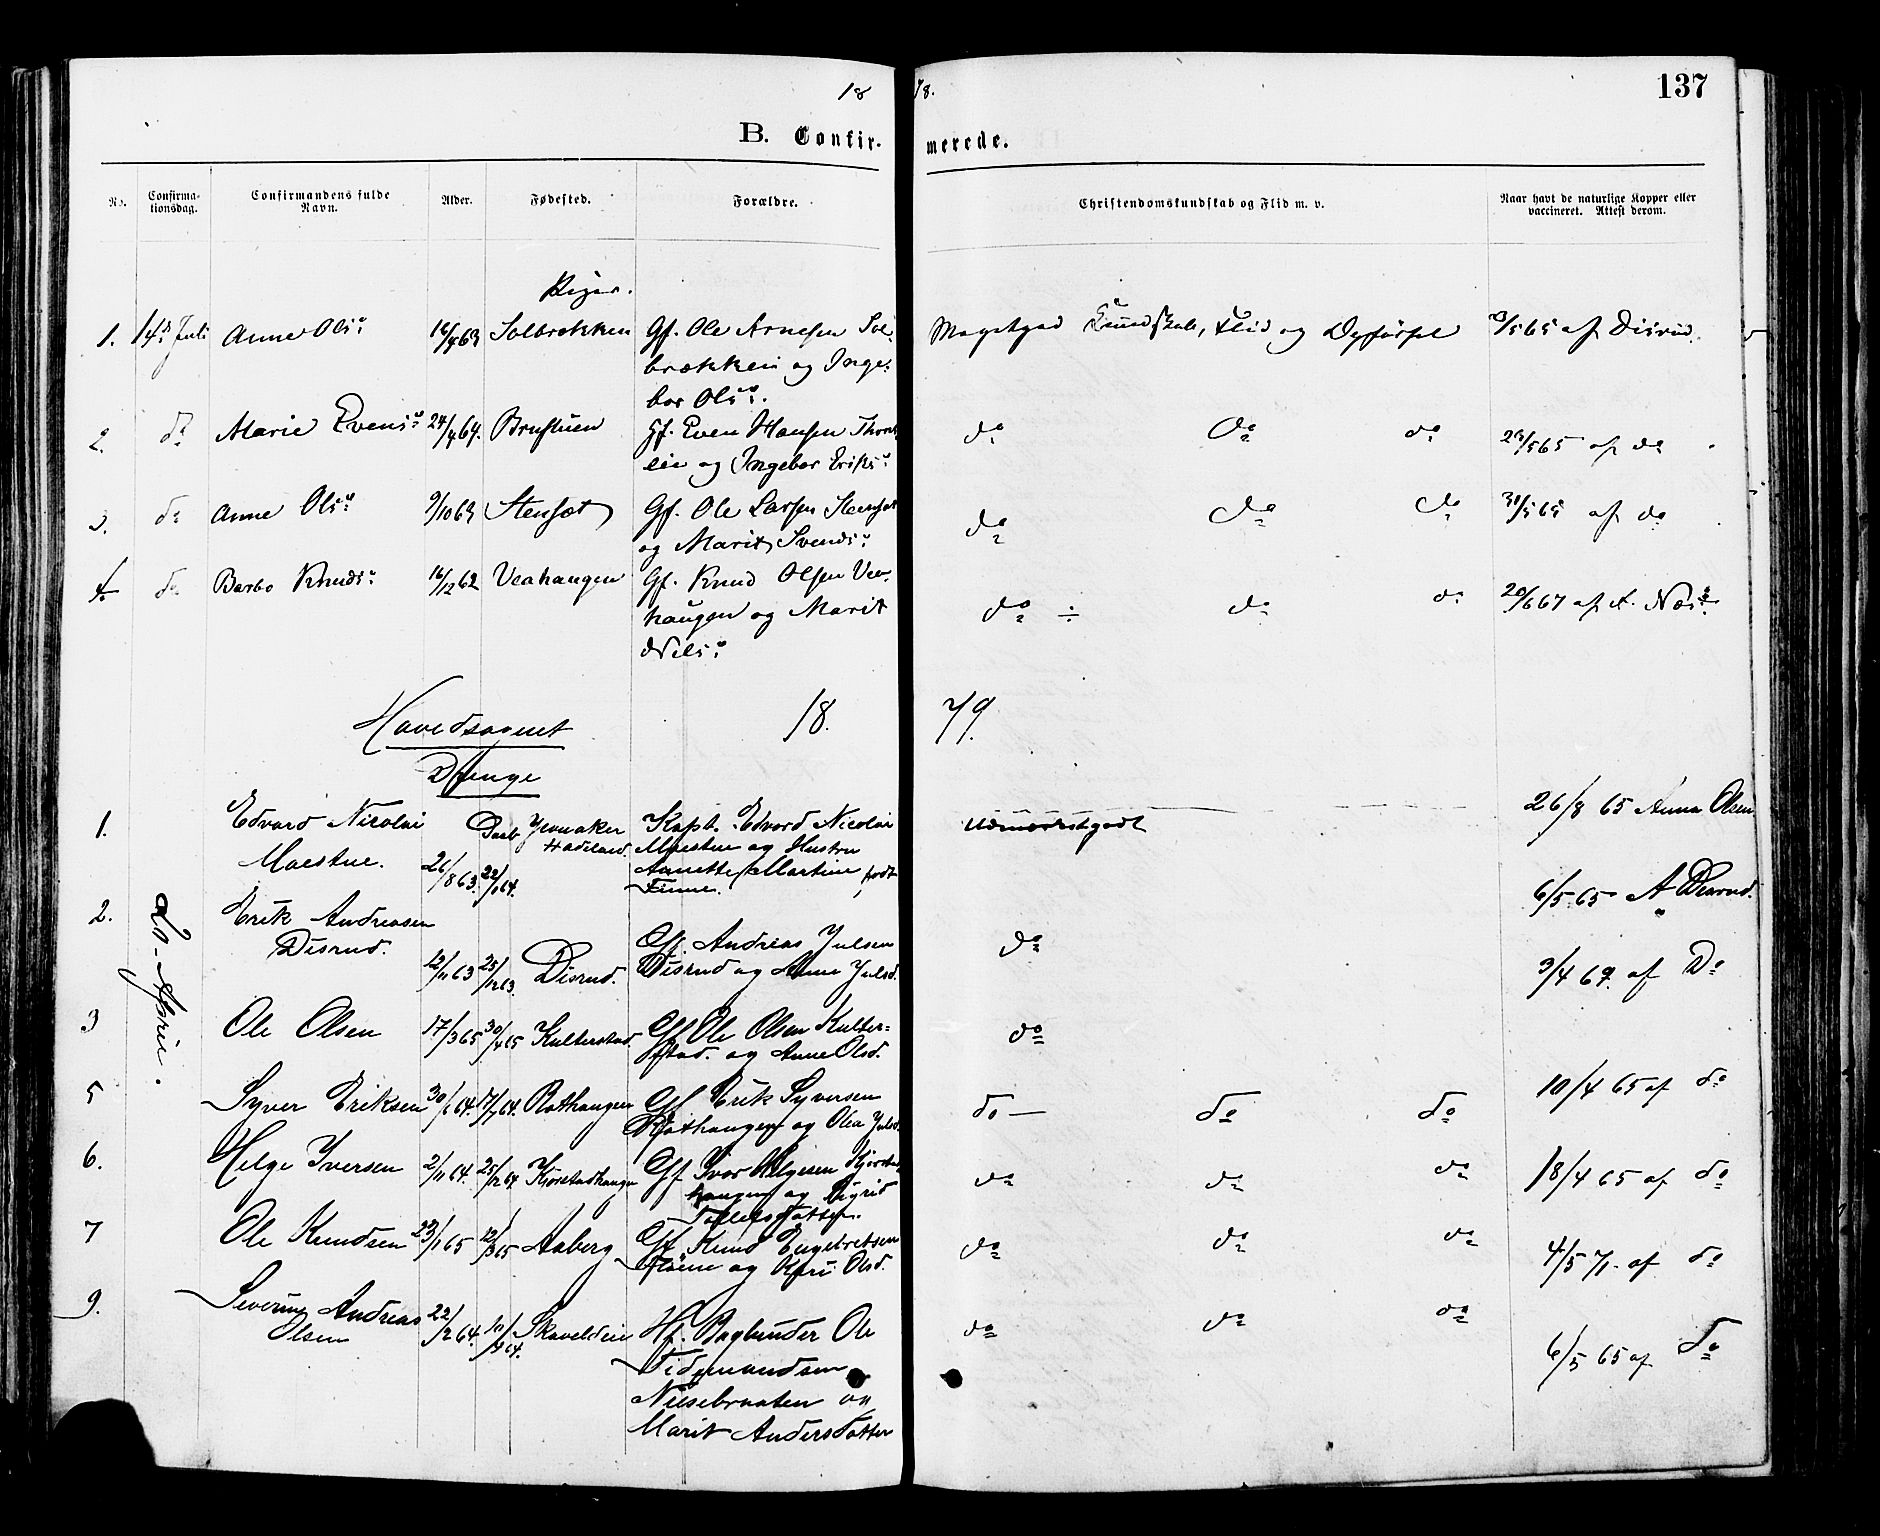 18
78.
137
B. Confir-
merede.
No.
Confirma-
tionsdag.
Confirmandens fulde
Navn.
Alder.
Fødested.
Forældre.
Christendomskundskab og Flid m. v.
Naar havt de naturlige Kopper eller
vaccineret. Attest derom.
Piger.
1. 14de Juli Anne Olsd. 16/4 63 Solbrekken Gf. Ole Arnesen Sol- Megetgod Kundskab, Flid og Opførsel /5 65 af Disrud.
brækken og Inge-
bor Olsd.
2. do Marie Evensd. 24/4 64. Brustuen Gf. Even Hansen do do do 29/5 65 af do
eie og Ingebor Eriksd.
3. do Anne Olsd. 9/10 63 Stensæt Gf. Ole Larsen Stensæt do do do 31/5 65 af do
og Marit Svendsd.
4. do Barbo Knudsd. 16/12 62 Veahaugen Gf. Knud Olsen Vea- do ÷ do do 20/6 67 af A. Næss
haugen og Marit
Nilsd.
Hovedsognet 18. 79.
Drenge
1. Edvard Nicolai Døbt Jevnaker Kapt. Edvard Nicolai Udmærketgodt 26/8 65 Anna Olsen
Hadeland. Moestue og Hustru
Moestue. 26/8 63. 22/1 64. Annette Martine født
Finne.
2. Erik Andreasen 6/5 65 A Disrud.
Disrud. 12/11 63 25/12 63. Disrud. Gf. Andreas Julsen do
Disrud og Anne Julsd.
20. April.
3 Ole Olsen 17/3 65 30/4 65 Kulterstad. Gf Ole Olsen Kulter- do 3/4 69. af Do
stad. og Anne Olsd.
5 Syver Eriksen 30/ 64. 17/7 64. Rathaugen Gf Erik Syversen do — do do 10/4 65 af do
Rathaugen og Olea Julsd.
6. Helge Iversen 2/11 64. 25/12 64. Kjørstadhaugen Gf Ivar Helgesen Kjørstad- do do do 18/4 65 af do
haugen og Sigrid
Tollefsdatter.
7 Ole Knudsen 23/1 65 12/3 65 Aaberg Gf. Knud Engebretsen do do do 4/5 71. af do
og Kari Olsd.
9. Severin Andreas 22/2 64. 10/4 64. Skaveldeie Hf. Baglunder Ole do do do 6/5 65 af do
Olsen
Tidemandsen
Nilsebraaten og
Marit Andersdatter